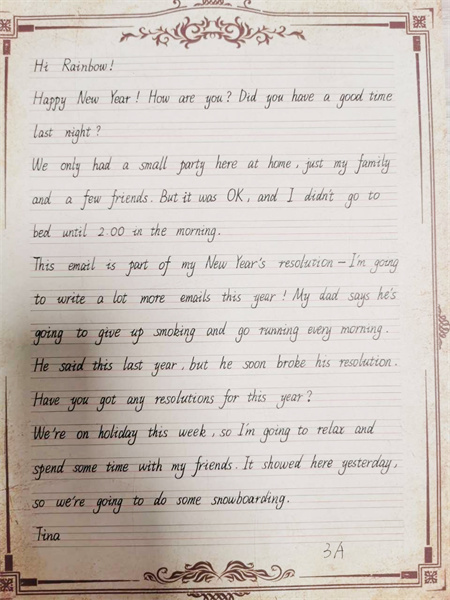 Hi Rainbow!
Happy New Year! How are you? Did you have a good time
last night?
We only had a small party here at home, just my family
and a few friends. But it was OK, and I didn't go to
bed until 2:00 in the morning.
This email is part of my New Year's resolution – I'm going
to write a lot more emails this year! My dad says he's
going to give up smoking and go running every morning.
He said this last year, but he soon broke his resolution.
Have you got any resolutions for this year?
We're on holiday this week, so I'm going to relax and
spend some time with my friends. It showed here yesterday,
so we're going to do some snowboarding.
Tina
3A